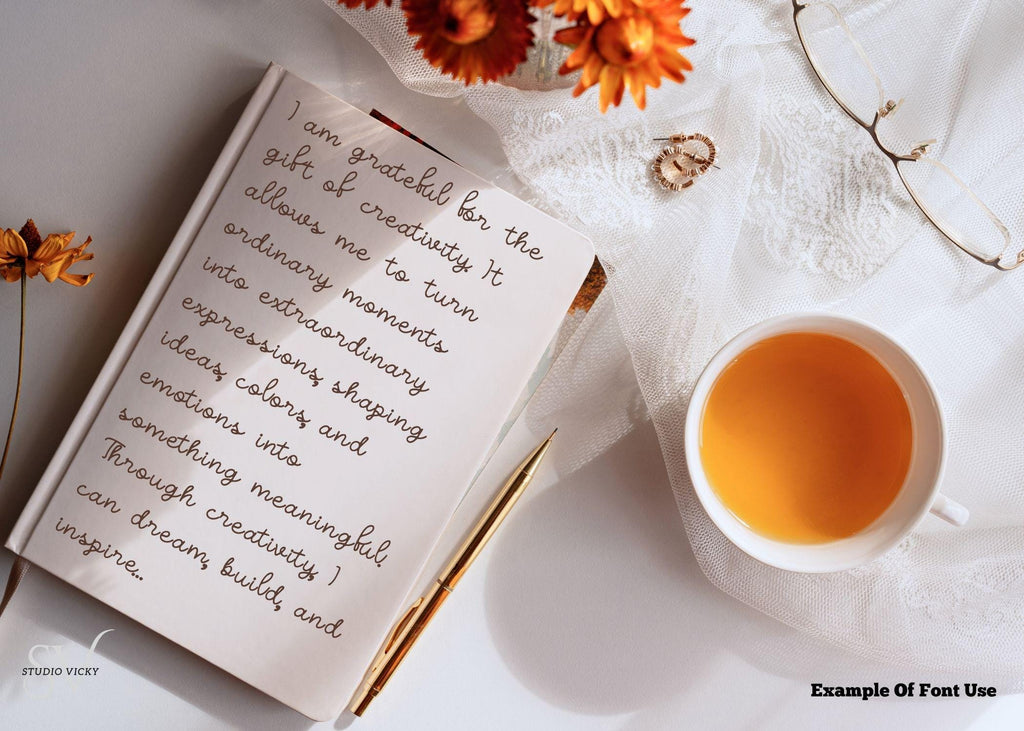 I am grateful for the
gift of creativity. It
allows me to turn
ordinary moments
into extraordinary
expressions, shaping
ideas, colors, and
emotions into
something meaningful.
Through creativity, I
can dream, build, and
inspire...
STUDIO VICKY
Example Of Font Use